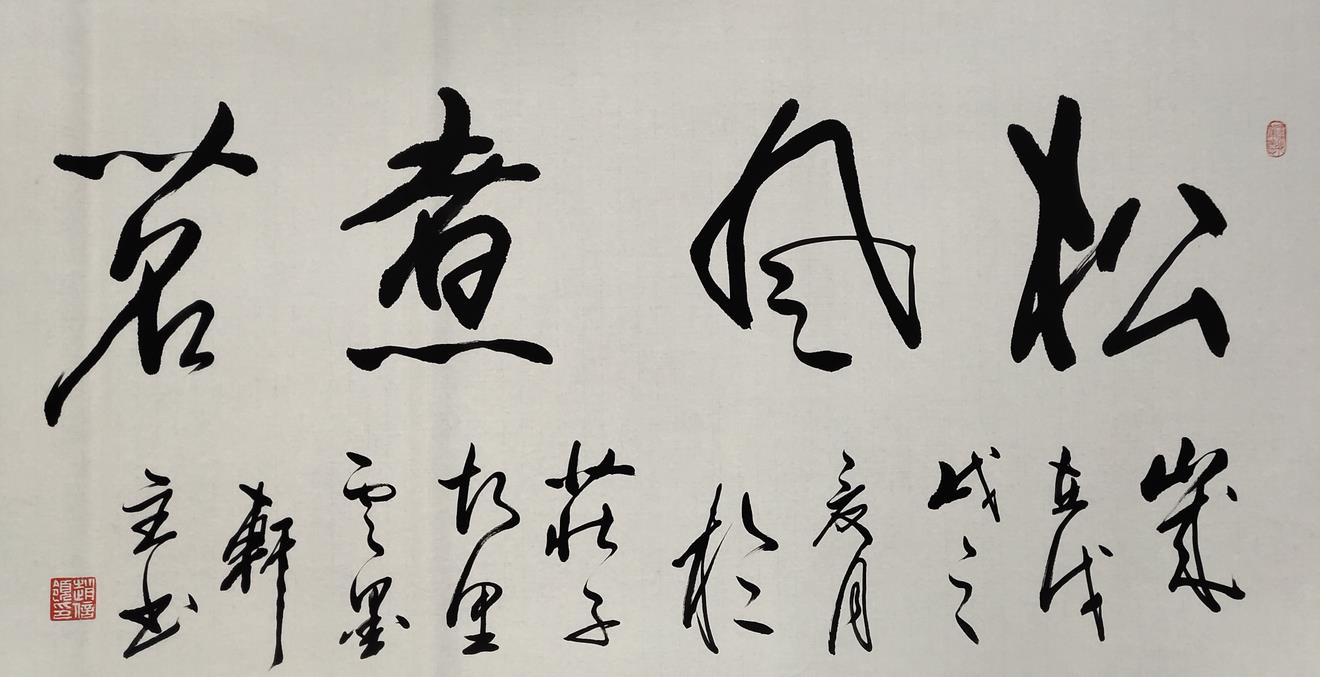 松風煮茗
歲
在戊
戌之
夏月
於
莊子
故里
雲墨
軒
主书